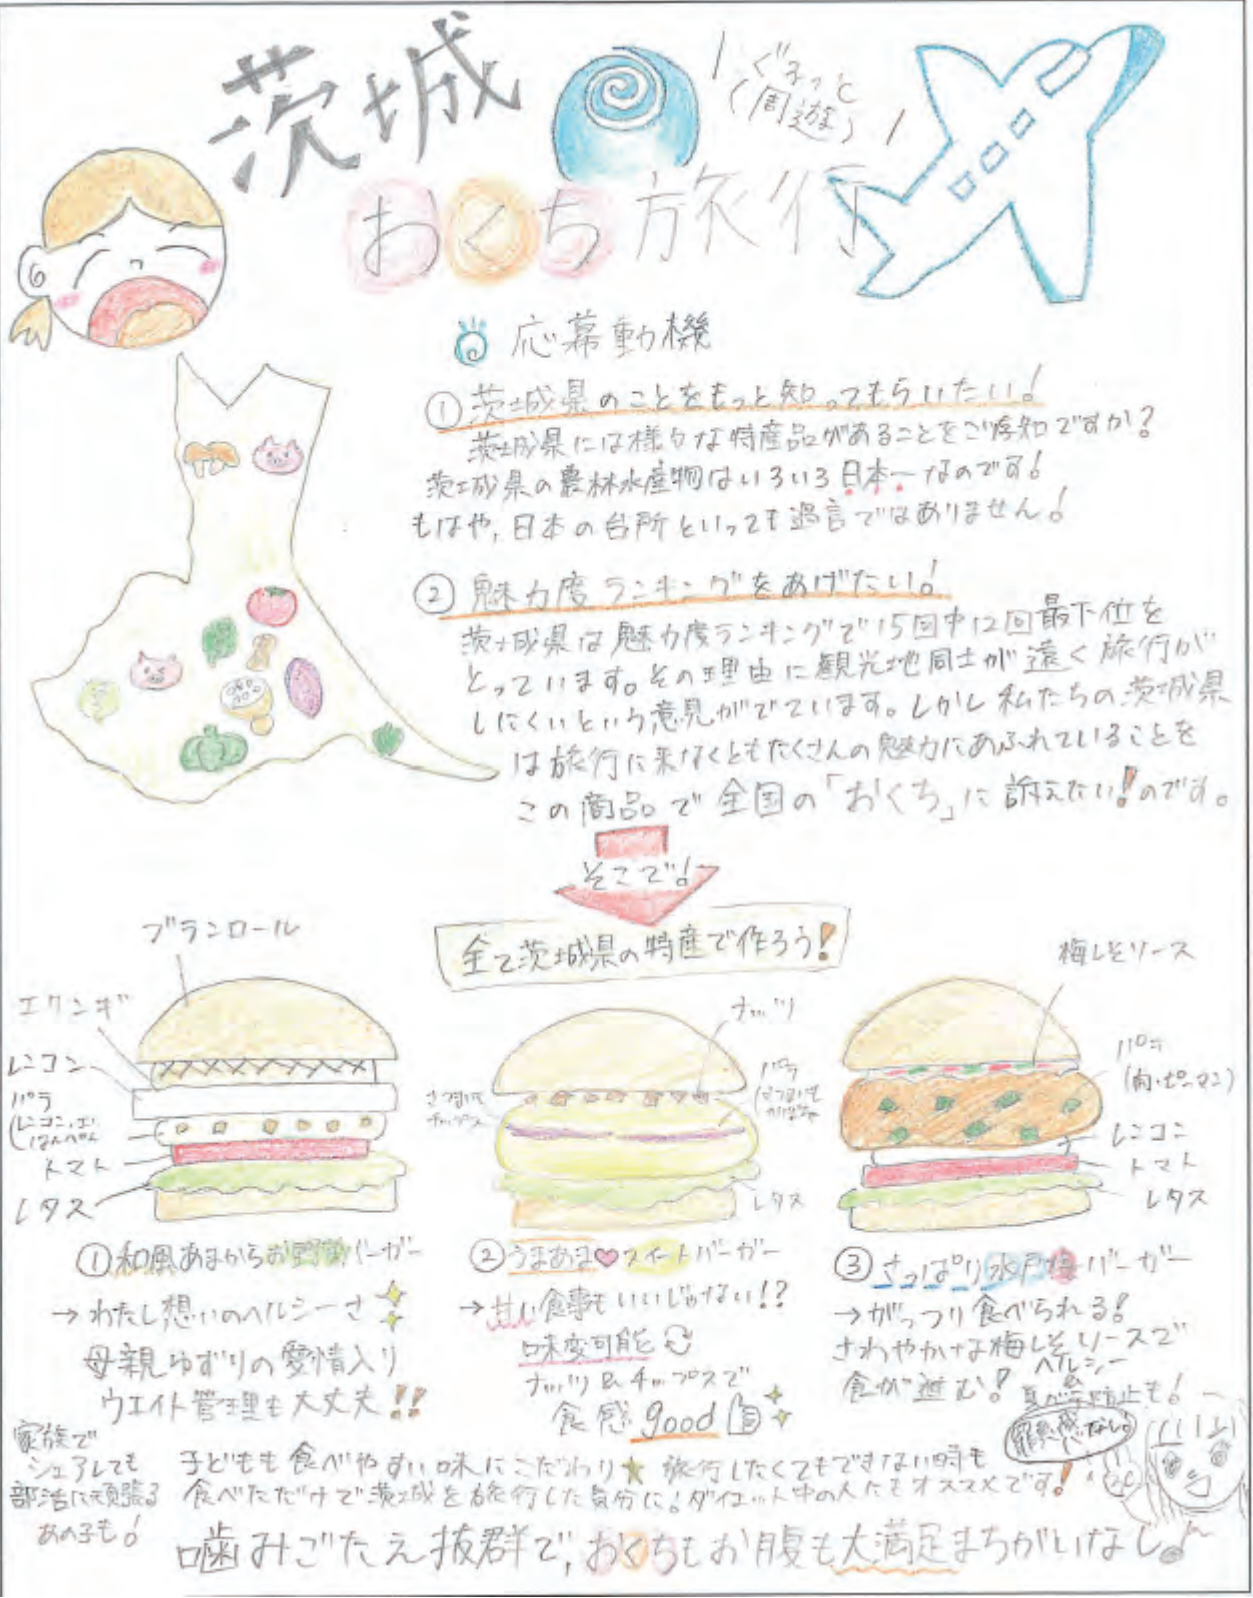 茨城
ぐるっと
(周遊)
おくち旅行
応募動機
① 茨城県のことをもっと知ってもらいたい!
茨城県には様々な特産品があることをご存知ですか?
茨城県の農林水産物はいろいろ日本一なのです!
もはや、日本の台所といっても過言ではありません!
② 魅力度ランキングをあげたい!
茨城県は魅力度ランキングで15回中12回最下位を
とっています。その理由に観光地同士が遠く旅行が
しにくいという意見がでています。しかし私たちの茨城県
は旅行に来なくともたくさんの魅力にあふれていることを
この商品で全国の「おくち」に訴えたい!のです。
そこで!
全て茨城県の特産で作ろう!
ブランロール
エリンギ
レンコン
パテ
(レンコン、エ
はんぺん
トマト
レタス
ナッツ
さつまいも
チップス
パテ
さつまいも
かぼちゃ
レタス
梅しそソース
パテ
(肉・ピーマン)
レンコン
トマト
レタス
① 和風あまからお野菜バーガー
→わたし想いのヘルシーさ
母親ゆずりの愛情入り
ウエイト管理も大丈夫!!
② うまあま♥スイートバーガー
→甘い食事もいいじゃない!?
味変可能
ナッツ&チップスで
食感good
③ さっぱり水戸梅バーガー
→がっつり食べられる!
さわやかな梅しそソースで
食が進む!
ヘルシー
&
夏バテ防止も!
罪悪感なし。
家族で
シェアしても
部活に頑張る
あの子も!
子どもも食べやすい味にこだわり★旅行したくてもできない時も
食べただけで茨城を旅行した気分に!ダイエット中の人にもオススメです!
噛みごたえ抜群で,おくちもお腹も大満足まちがいなし♪